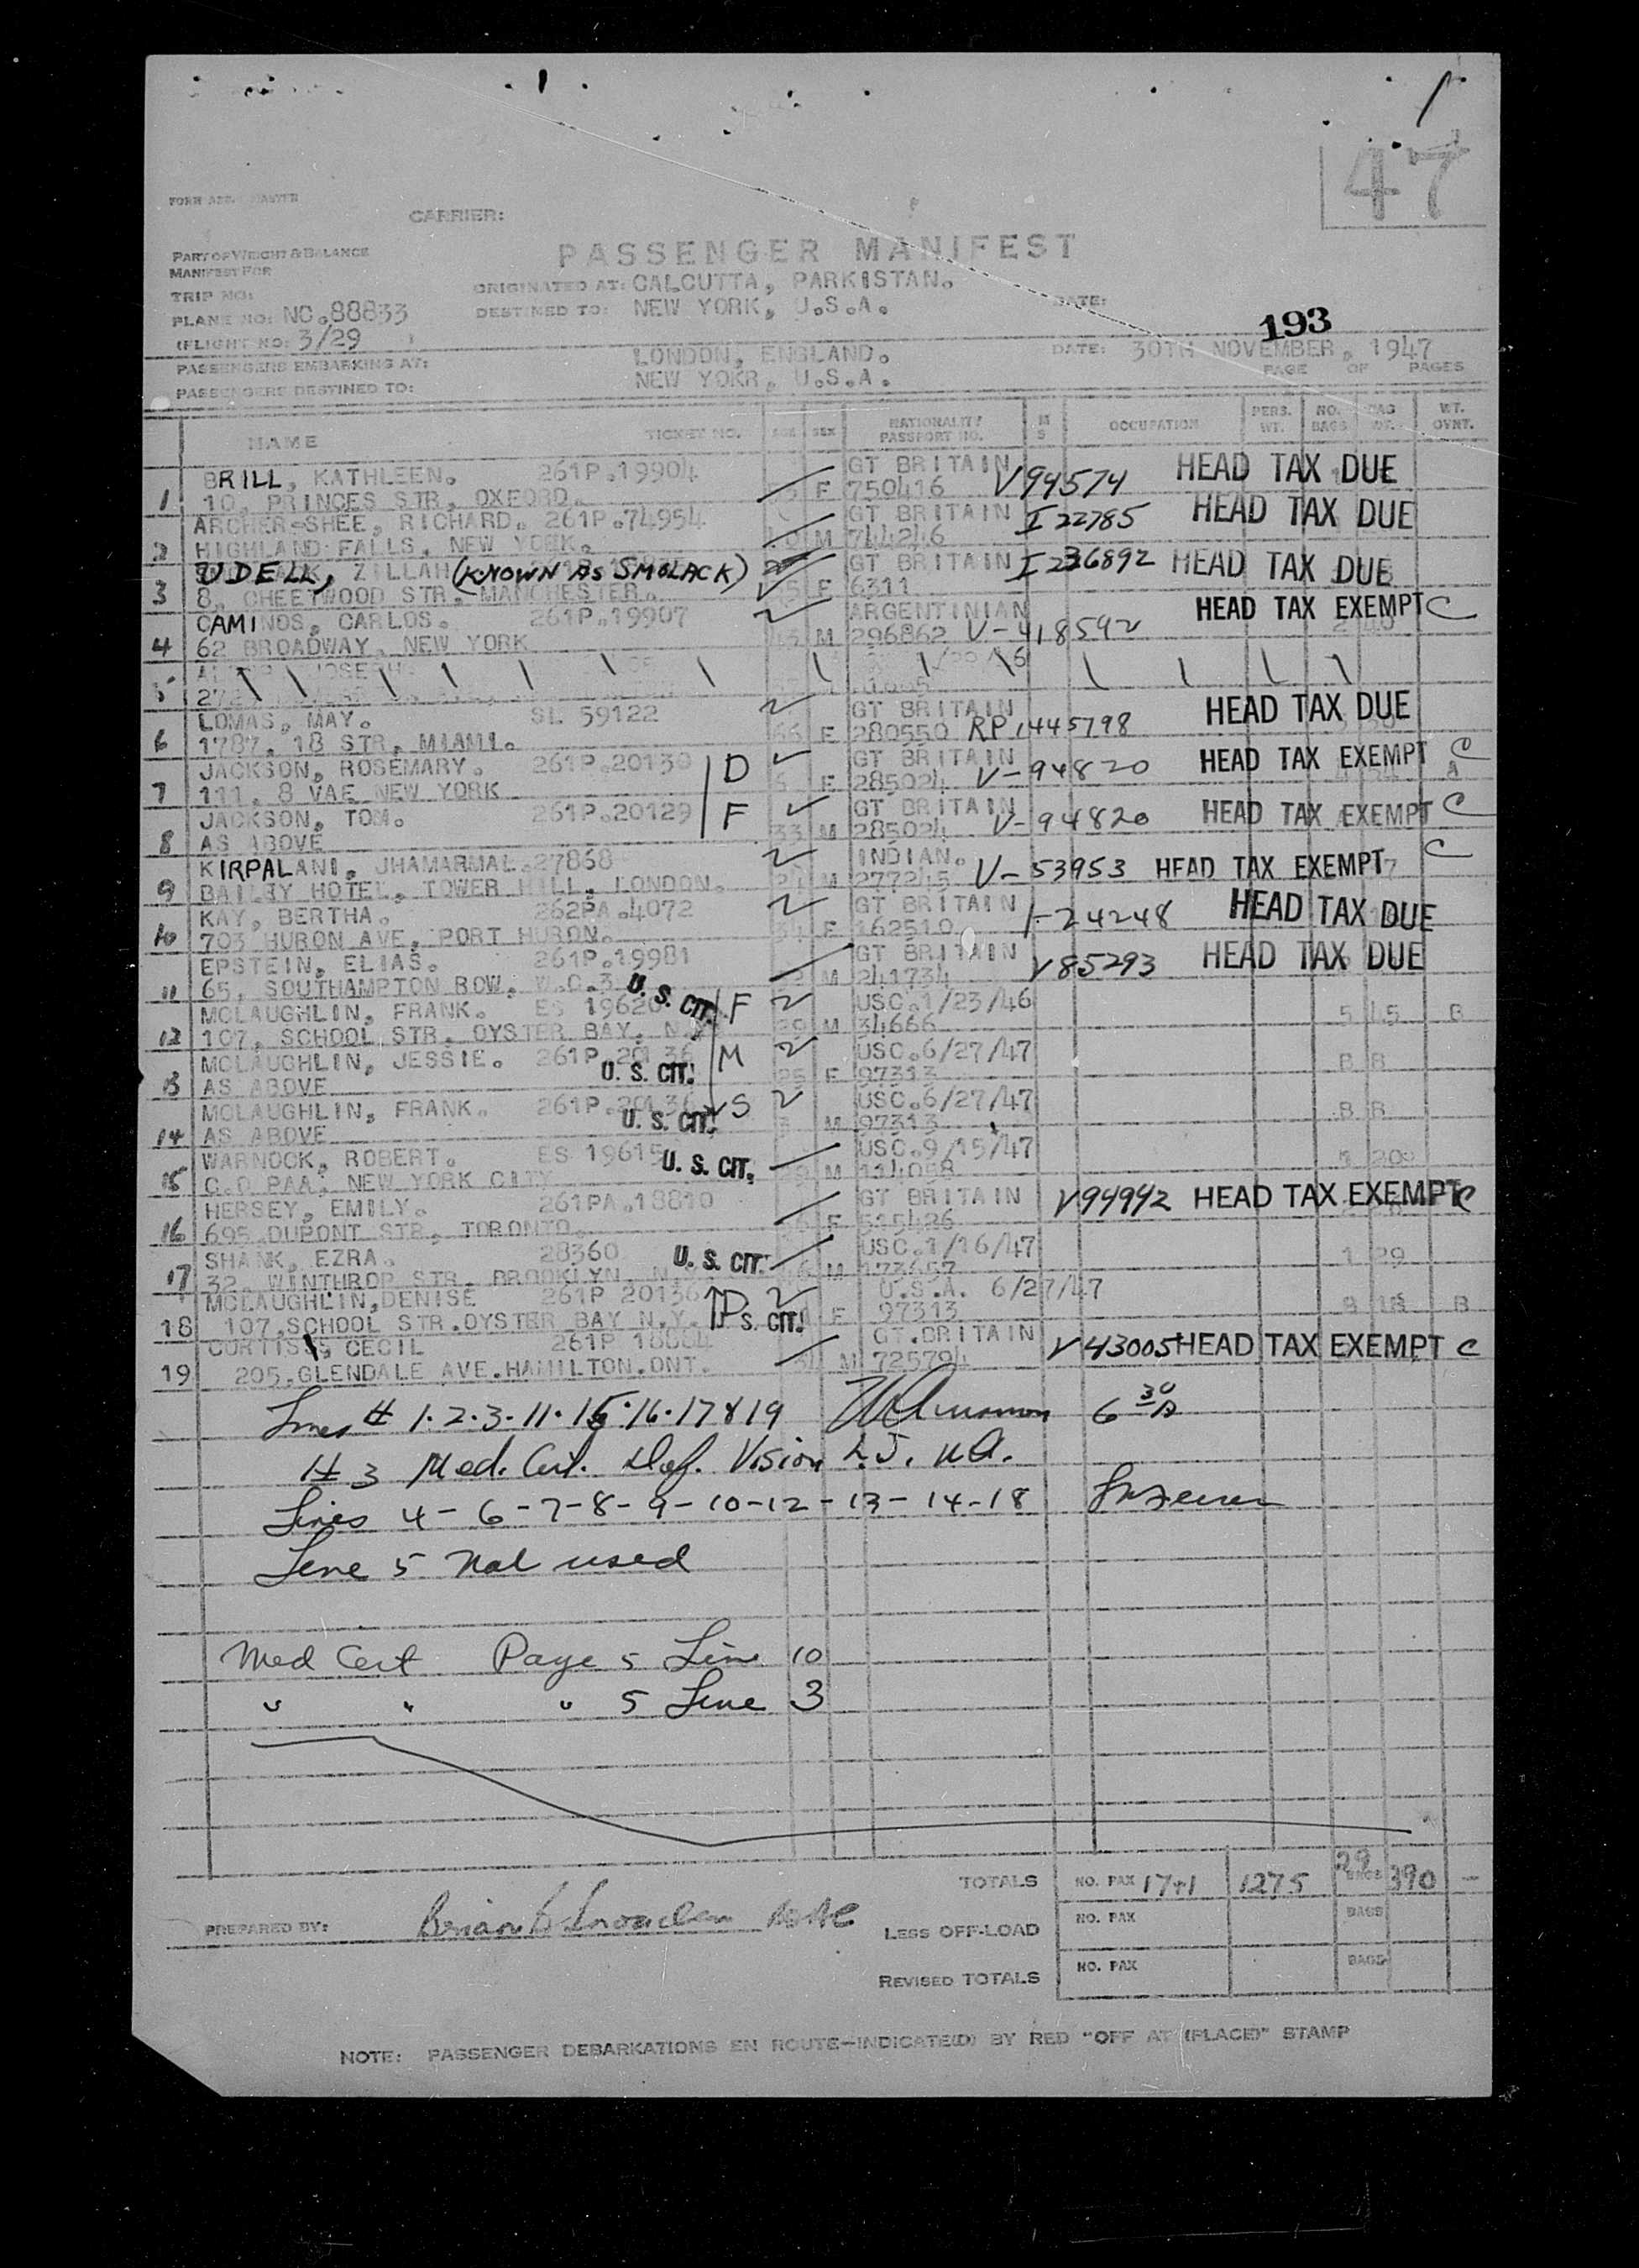 47
CARRIER:
PASSENGER MANIFEST
PART OF WEIGHT & BALANCE
MANIFEST FOR
TRIP NO:
ORIGINATED AT: CALCUTTA, PARKISTAN.
DATE:
PLANE NO: NC.88833
DESTINED TO: NEW YORK, U.S.A.
193
(FLIGHT NO: 3/29 )
PASSENGERS EMBARKING AT: LONDON, ENGLAND.
DATE: 30TH NOVEMBER, 1947
PASSENGERS DESTINED TO: NEW YOKR, U.S.A.
PAGE OF PAGES
NAME TICKET NO. AGE SEX NATIONALITY/ PASSPORT NO. M S OCCUPATION PERS. WT. NO. BAGS BAG WT. WT. OVNT.
BRILL, KATHLEEN. 261P.19904 GT BRITAIN V94574 HEAD TAX DUE
1 10, PRINCES STR, OXFORD. F 750416
ARCHER-SHEE, RICHARD. 261P.74954 GT BRITAIN I 22785 HEAD TAX DUE
2 HIGHLAND FALLS, NEW YORK. M 744246
UDELL, ZILLAH (KNOWN AS SMOLACK) GT BRITAIN I 236892 HEAD TAX DUE
3 8, CHEETWOOD STR. MANCHESTER. F 6311
CAMINOS, CARLOS. 261P.19907 ARGENTINIAN HEAD TAX EXEMPT C
4 62 BROADWAY, NEW YORK M 296862 V-418592
JOSEPH
5
LOMAS, MAY. SL 59122 GT BRITAIN HEAD TAX DUE
6 1787, 18 STR, MIAMI. 66 F 280550 RP 1445798
JACKSON, ROSEMARY. 261P.20130 D GT BRITAIN HEAD TAX EXEMPT C
7 111, 8 VAE NEW YORK F 285024 V-94820 A
JACKSON, TOM. 261P.20129 F GT BRITAIN HEAD TAX EXEMPT C
8 AS ABOVE 33 M 285024 V-94820
KIRPALANI, JHAMARMAL. 27868 INDIAN. V-53953 HEAD TAX EXEMPT C
9 BAILEY HOTEL, TOWER HILL, LONDON. M 277245
KAY, BERTHA. 262PA.4072 GT BRITAIN 1-24248 HEAD TAX DUE
10 703 HURON AVE, PORT HURON. 34 F 162510
EPSTEIN, ELIAS. 261P.19981 GT BRITAIN V85293 HEAD TAX DUE
11 65, SOUTHAMPTON ROW, W.C.3 M 241734
MCLAUGHLIN, FRANK. ES 19620 U. S. CIT. F USC.1/23/46
12 107, SCHOOL STR. OYSTER BAY, N.Y 29 M 34666 5 45 B
MCLAUGHLIN, JESSIE. 261P.20136 U. S. CIT. M USC.6/27/47
13 AS ABOVE 25 F 97313 B B
MCLAUGHLIN, FRANK. 261P.20136 U. S. CIT. S USC.6/27/47
14 AS ABOVE M 97313 B B
WARNOCK, ROBERT. ES 19615 U. S. CIT. USC.9/15/47
15 C.O PAA, NEW YORK CITY M 114058
HERSEY, EMILY. 261PA.18810 GT BRITAIN V94942 HEAD TAX EXEMPT C
16 695 DUPONT STR, TORONTO. F 515426
SHANK, EZRA. 28360 U. S. CIT. USC.1/16/47
17 32, WINTHROP STR. BROOKLYN, N. M 173657 1 29
MCLAUGHLIN, DENISE 261P 20136 D U.S.A. 6/27/47
18 107, SCHOOL STR. OYSTER BAY N.Y. S. CIT. F 97313 B
CURTISS, CECIL 261P GT. BRITAIN V43005 HEAD TAX EXEMPT C
19 205, GLENDALE AVE. HAMILTON. ONT. 31 M 72579
Lines # 1·2·3·11·15·16·17 & 19 6 30 A
# 3 Med. Cert. Def. Vision
Lines 4-6-7-8-9-10-12-13-14-18
Line 5 not used
Med Cert Page 5 Line 10
" " " 5 Line 3
TOTALS NO. PAX 17+1 1275 29 BAGS 390 -
PREPARED BY: Brian
LESS OFF-LOAD NO. PAX BAGS
REVISED TOTALS NO. PAX BAGS
NOTE: PASSENGER DEBARKATIONS EN ROUTE—INDICATE(D) BY RED "OFF AT (PLACE)" STAMP